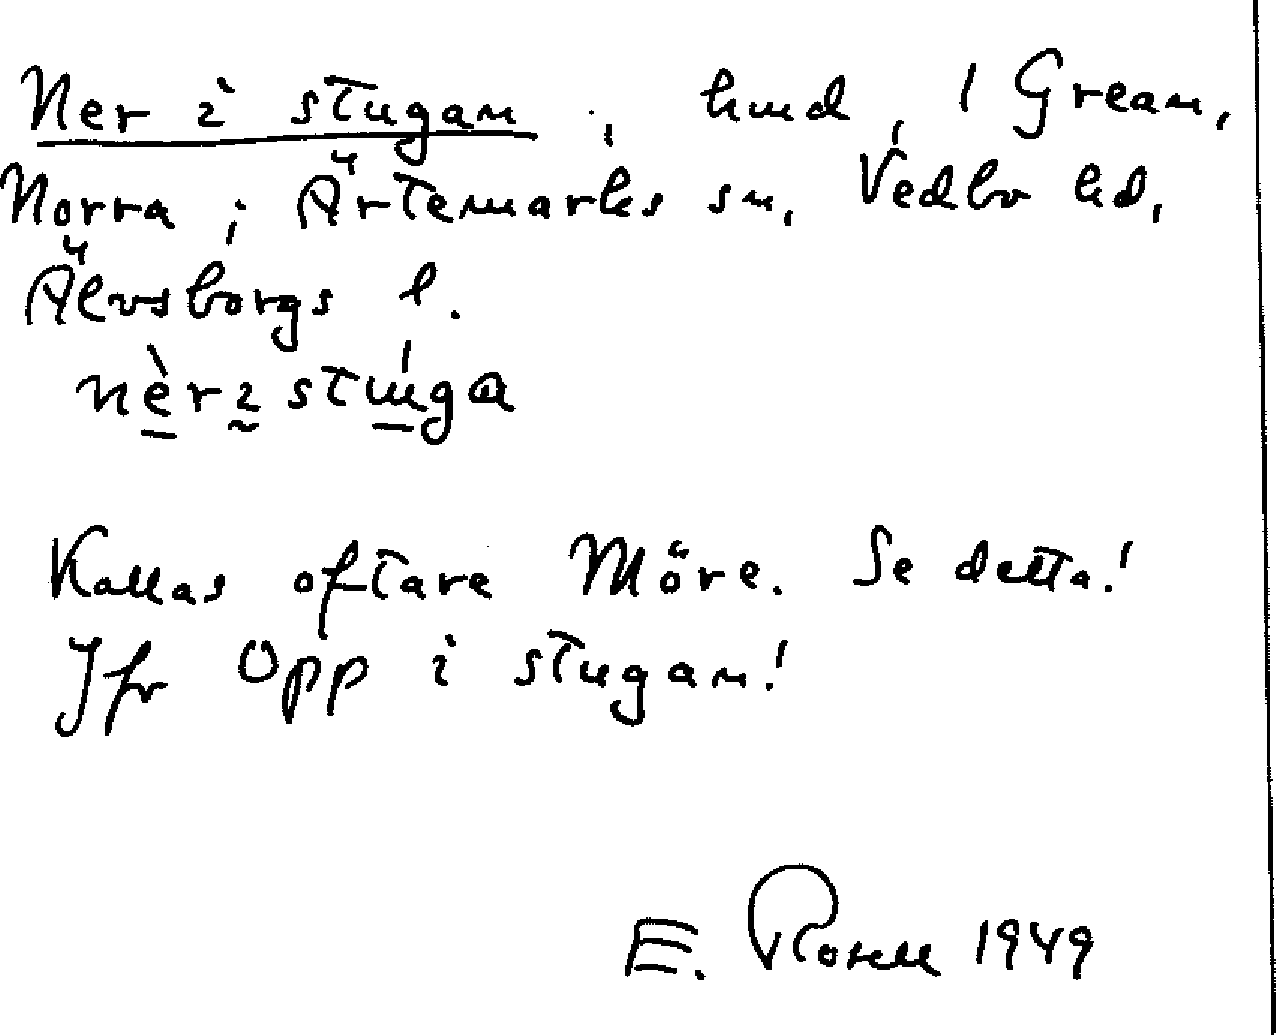 Ner i stugan, hmd, 1 Grean,
Norra; Ärtemarks sn, Vedbo hd,
Älvsborgs l.
nèr i stúga
Kallas oftare Möre. Se detta!
Jfr Opp i stugan!
E. 1949